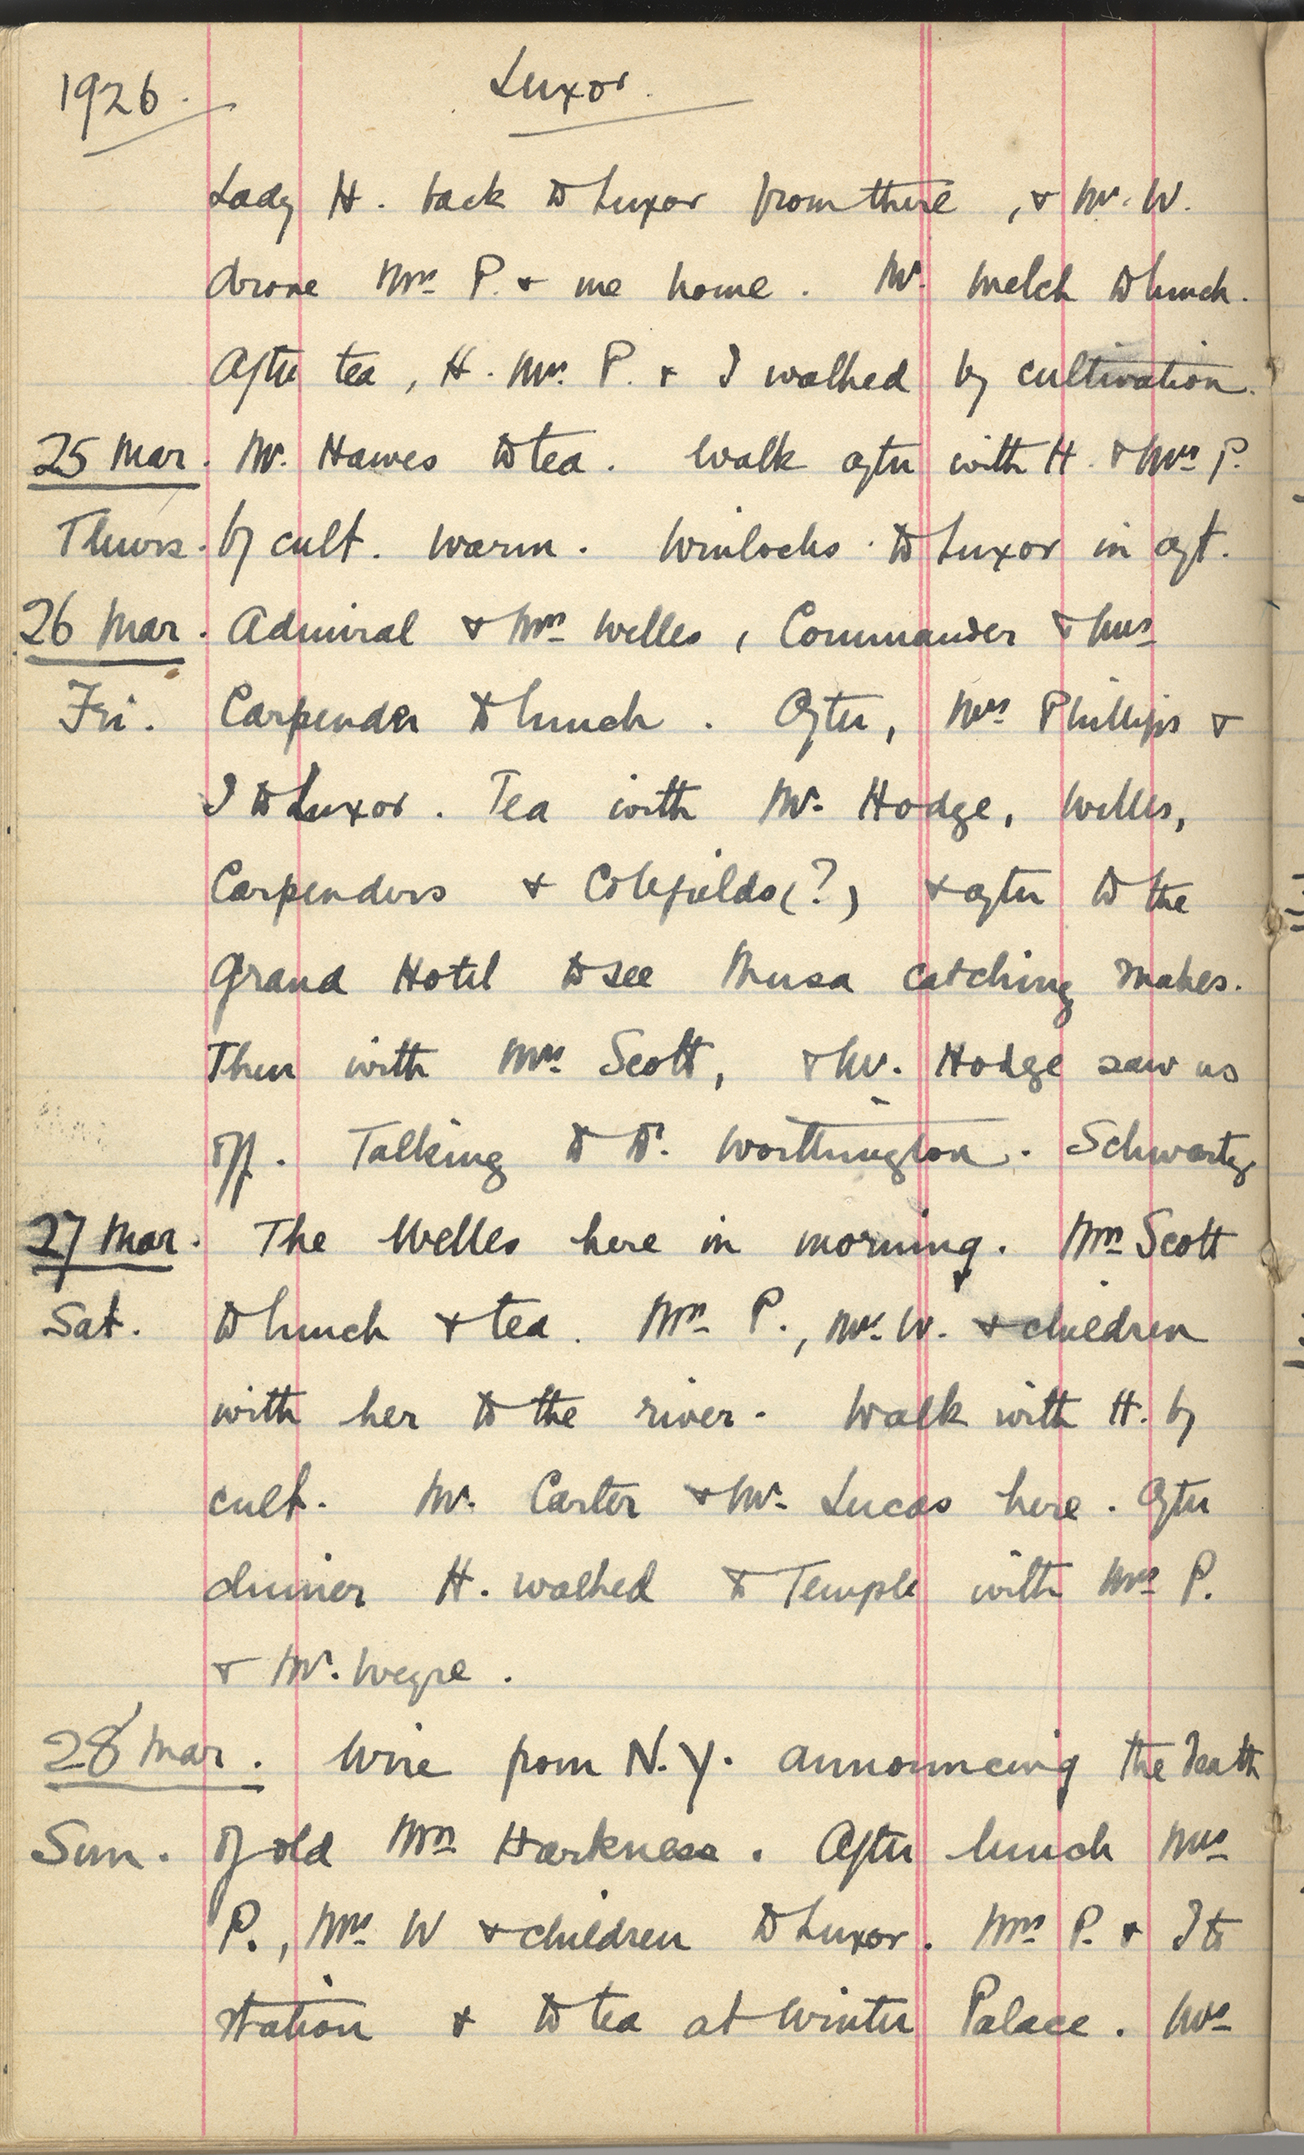 1926. Luxor.
Lady H. back to Luxor from there, & Mr. W.
drove Mrs P. & me home. Mr. Welch to lunch.
After tea, H. Mrs. P. & I walked by cultivation.
25 Mar. Mr. Hawes to tea. Walk after with H. & Mrs P.
Thurs. by cult. Warm. Winlocks to Luxor in aft.
26 Mar. Admiral & Mrs Welles, Commander & Mrs
Fri. Carpender to lunch. After, Mrs Phillips &
I to Luxor. Tea with Mr. Hodge, Welles,
Carpenders & Colefields(?) & after to the
Grand Hotel to see Musa catching snakes.
Then with Mrs. Scott, & Mr. Hodge saw us
off. Talking to Dr. Worthington. Schwartz
27 Mar. The Welles here in morning. Mrs Scott
Sat. to lunch & tea. Mrs P., Mrs. W. & children
with her to the river. Walk with H. by
cult. Mr. Carter & Mr. Lucas here. After
dinner H. walked to Temple with Mrs P.
& Mr.
28 Mar. Wire from N.Y. announcing the death
Sun. of old Mrs Harkness. After lunch Mrs
P., Mrs. W & children to Luxor. Mrs P. & I to
station & to tea at Winter Palace. Mrs